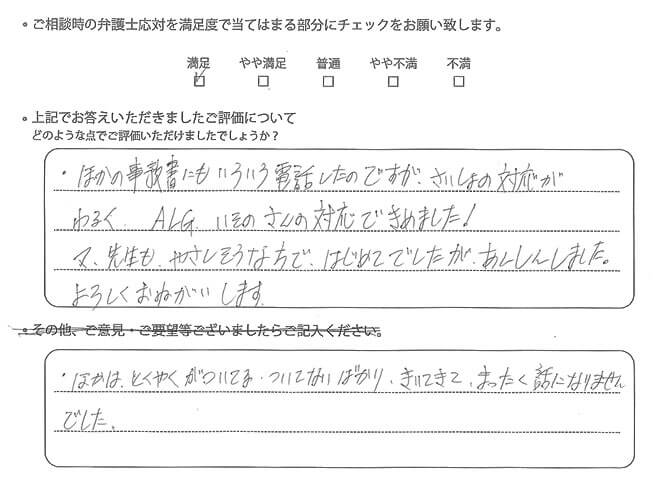 • ご相談時の弁護士応対を満足度で当てはまる部分にチェックをお願い致します。
満足 やや満足 普通 やや不満 不満
☑ □ □ □ □
• 上記でお答えいただきましたご評価について
どのような点でご評価いただけましたでしょうか？
・ほかの事務書にもいろいろ電話したのですが、さいしょの対応が
わるく、ALG、いそのさんの対応できめました！
又、先生も、やさしそうな方で、はじめてでしたが、あんしんしました。
よろしくおねがいします。
• その他、ご意見・ご要望等ございましたらご記入ください。
・ほかは、とくやくがついてる・ついてないばかり、きいてきて、まったく話になりません
でした。